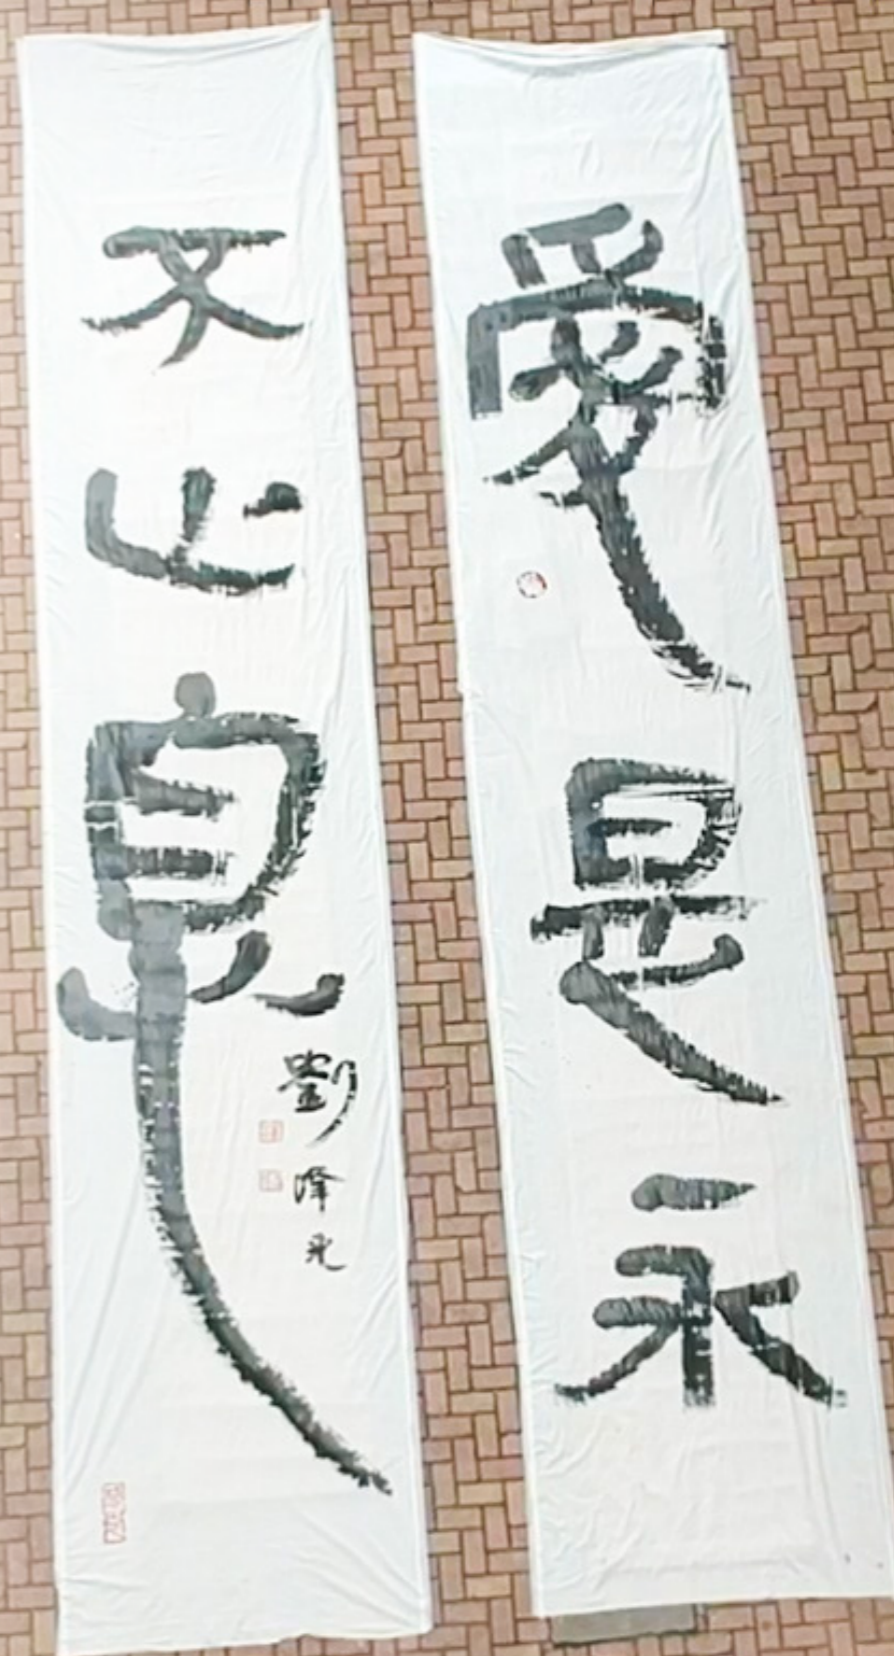 愛是永
不止息
劉澤光